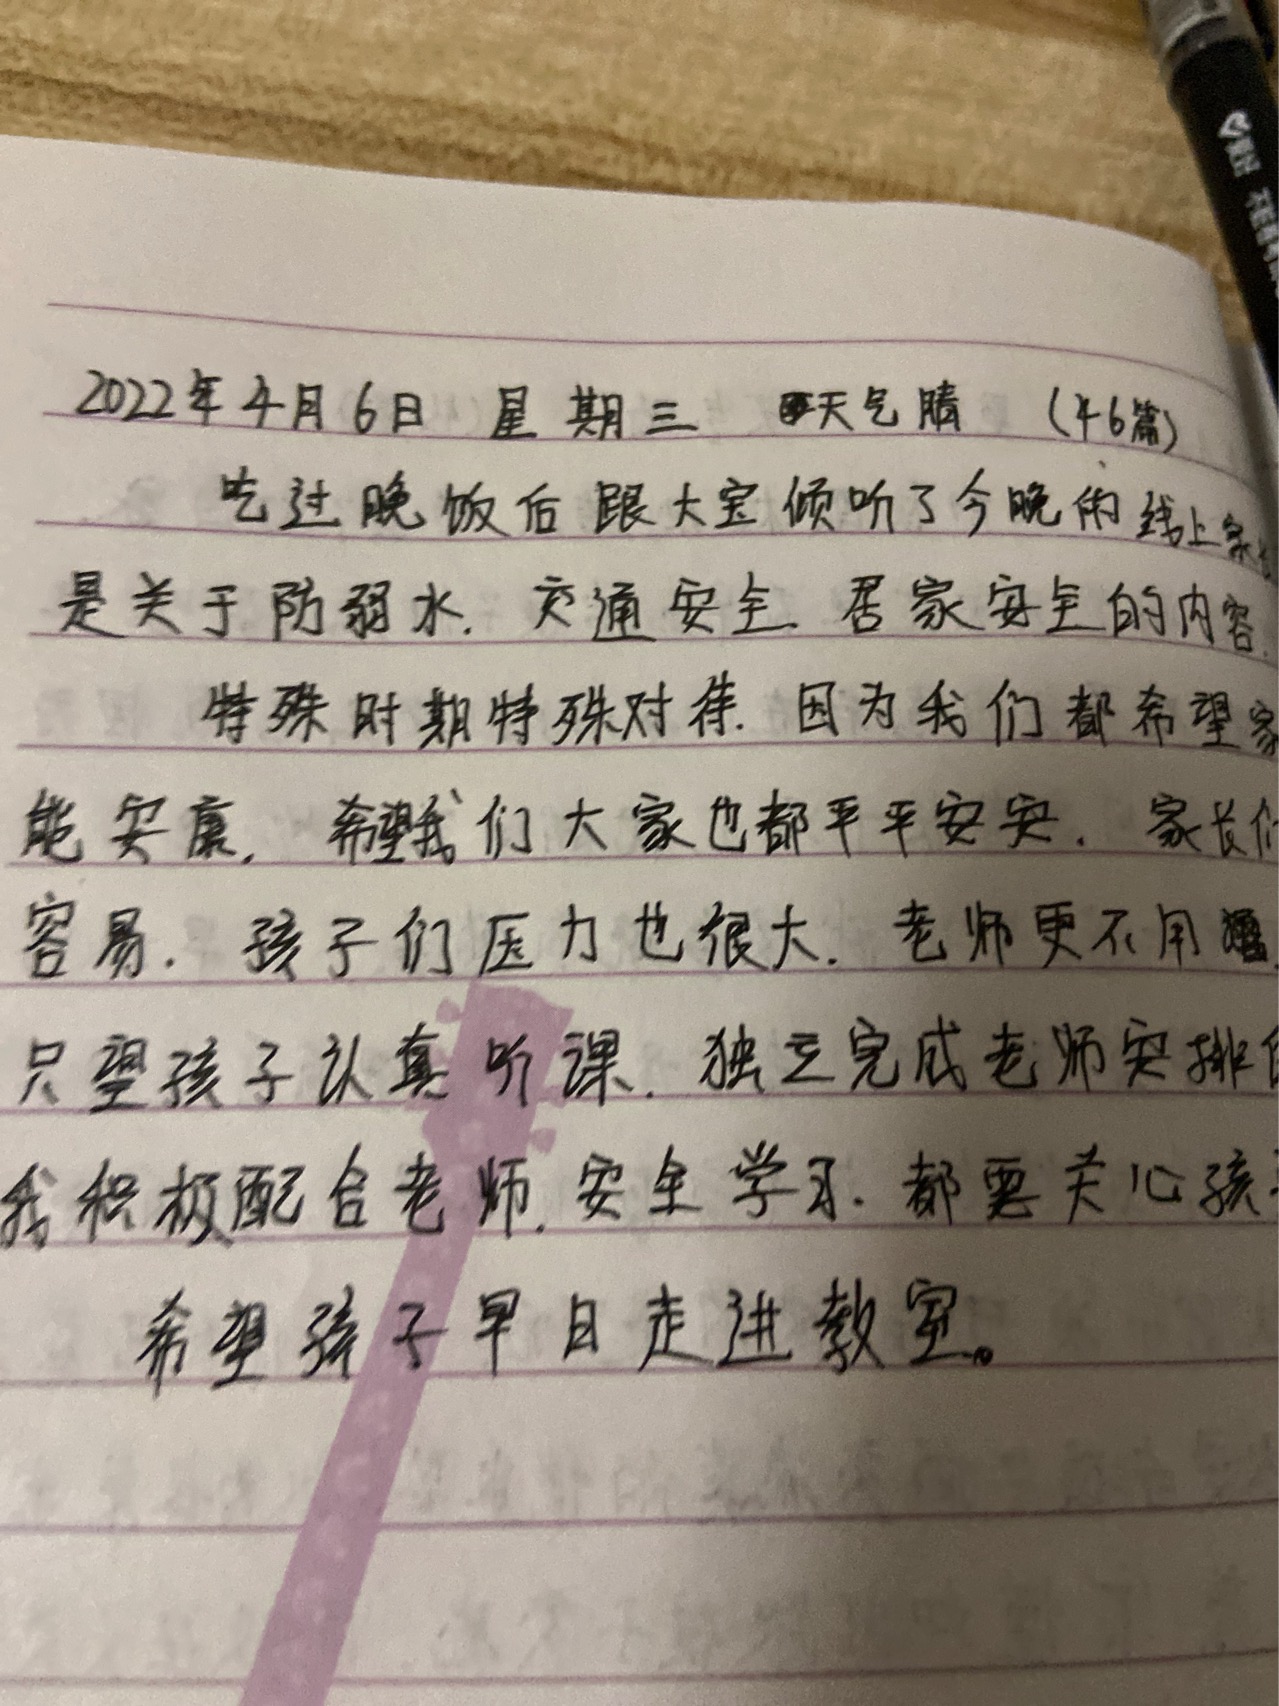 2022年4月6日 星期三 天气晴 (46篇)
吃过晚饭后跟大宝倾听了今晚的线上家
是关于防弱水.交通安全.居家安全的内容.
特殊时期特殊对待.因为我们都希望家
能安康.希望我们大家也都平平安安.家长们
容易.孩子们压力也很大.老师更不用
只望孩子认真听课.独立完成老师安排
我积极配合老师.安全学习.都要关心孩
希望孩子早日走进教室。